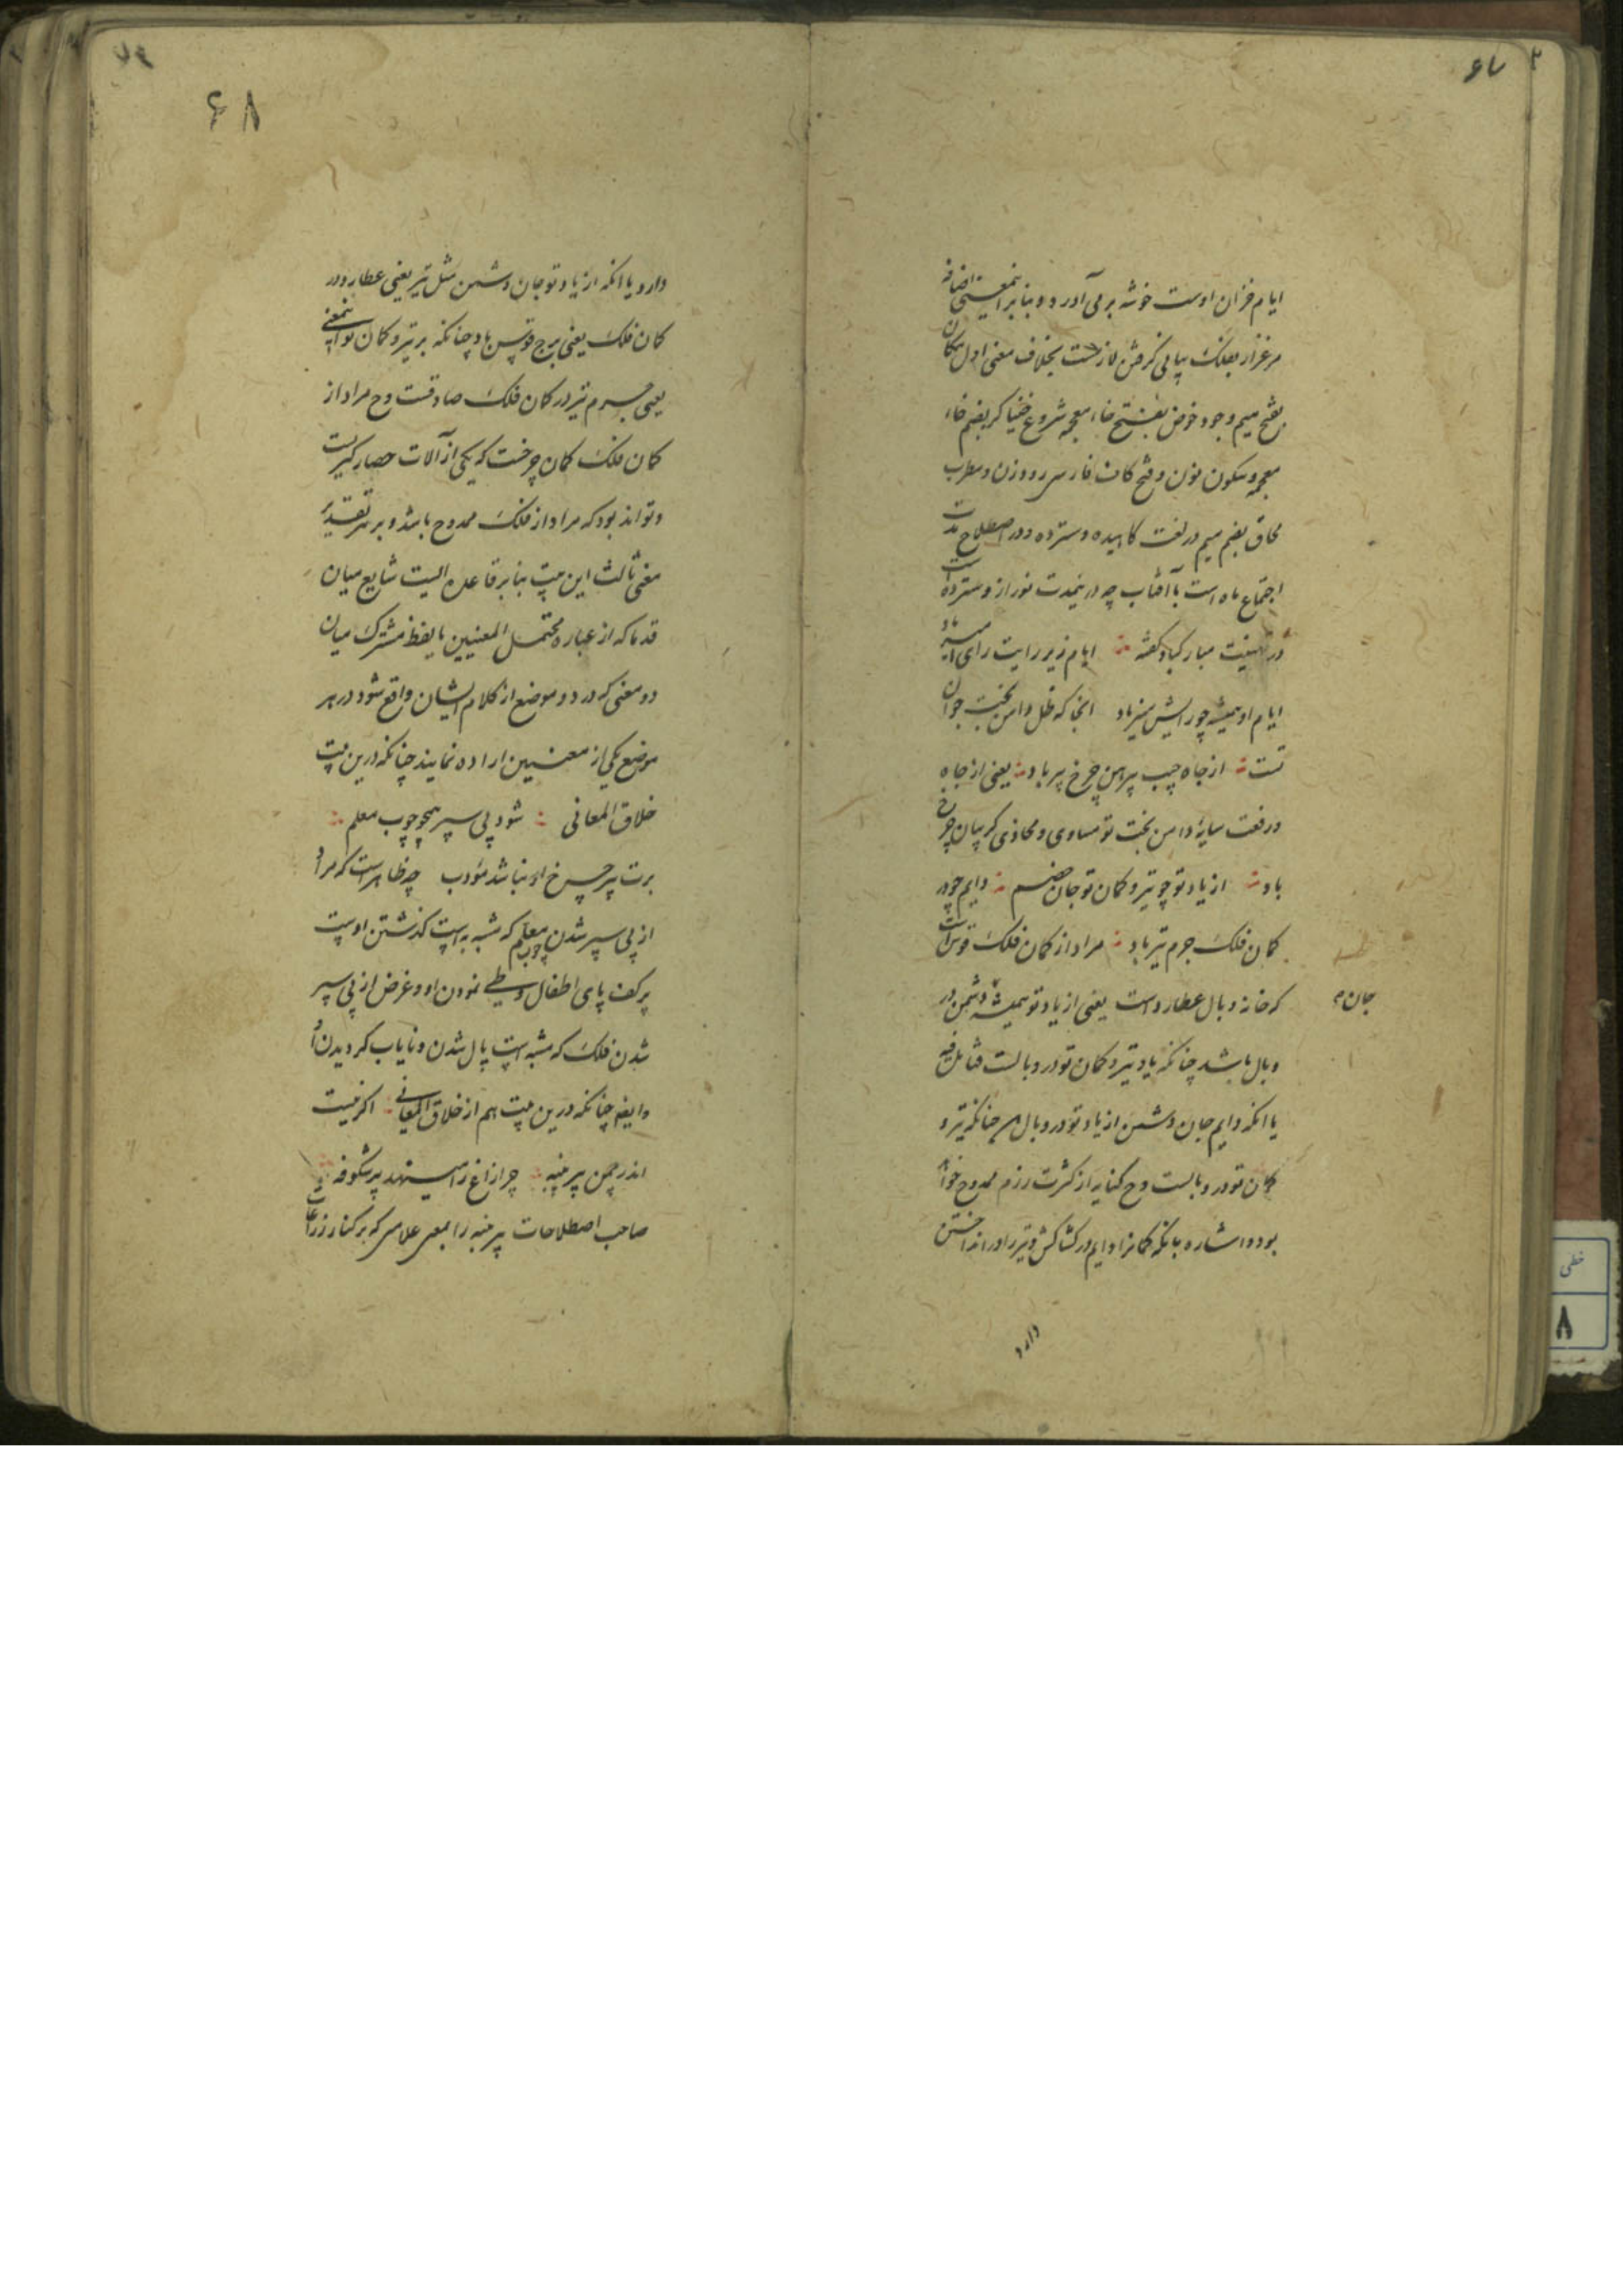 ۶۷
ایام خزان اوست خوشه برمی آورد و بنا بر اینمعنی اضافه
مرغزار بفلک بیانی گرفتن لازمست بخلاف معنی اول مکان
بفتح میم وجود خوض بفتح خاء معجمه شروع خنیاگر بضم خاء
معجمه و سکون نون و فتح کاف فارسی رود زن و مطرب
محاق بضم میم در لغت کاهیده و سترده و در اصطلاح مدت
اجتماع ماه است با آفتاب چه درینمدت نور از و سترده است
در تهنیت مبارکباد گفته ایام زیر رایت رای امیر باد
ایام او همیشه چو رایش منیر باد انجا که ظل دامن بخت جوان
تست از جاه جیب پیرهن چرخ پیر باد یعنی از جاه
و رفعت سایهٔ دامن بخت تو مساوی و محاذی گریبان چرخ
باد از یاد تو چو تیر و کمان تو جان خصم دایم چو در
کمان فلک جرم تیر باد مراد از کمان فلک قوس است
که خانه وبال عطارد است یعنی از یاد تو همیشه دشمن در
جان
وبال باشد چنانکه یاد تیر و کمان تو در وبالست فتامل فیه
یا انکه دایم جان دشمن از یاد تو در وبال چنانکه تیر و
کمان تو در وبالست وح کنایه از کثرت رزم ممدوح خواهد
بود و اشاره بانکه کمانرا دایم در کشاکش و تیر را در انداختن
دارد
۶۸
دارد یا انکه از یاد تو جان دشمن مثل تیر یعنی عطارد در
کمان فلک یعنی برج قوس باد چنانکه بر تیر و کمان تو اینمعنی
یعنی جرم تیر در کمان فلک صادقست وح مراد از
کمان فلک کمان چرخست که یکی از آلات حصار گیریست
و تواند بود که مراد از فلک ممدوح باشد و بر هر تقدیر
معنی ثالث این بیت بنا بر قاعده ایست شایع میان
قدما که از عباره محتمل المعنیین یا لفظ مشترک میان
دو معنی که در دو موضع از کلام ایشان واقع شود در هر
موضع یکی از معنیین اراده نمایند چنانکه درین بیت
خلاق المعانی شود پی سپر همچو چوب معلم
برت پیر چرخ ار نباشد مؤدب چه ظاهر است که مراد
از پی سپر شدن چوب معلم که مشبه به است گذشتن اوست
بر کف پای اطفال و طی نمودن او و غرض از پی سپر
شدن فلک که مشبه است پامال شدن و نایاب گردیدن او
و ایضا چنانکه درین بیت هم از خلاق المعانی اگر نیست
اندر چمن پیر پنبه چرا زاغ را مینهد پر شکوفه
صاحب اصطلاحات پیر پنبه را بمعنی علامتی که بر کنار زراعت